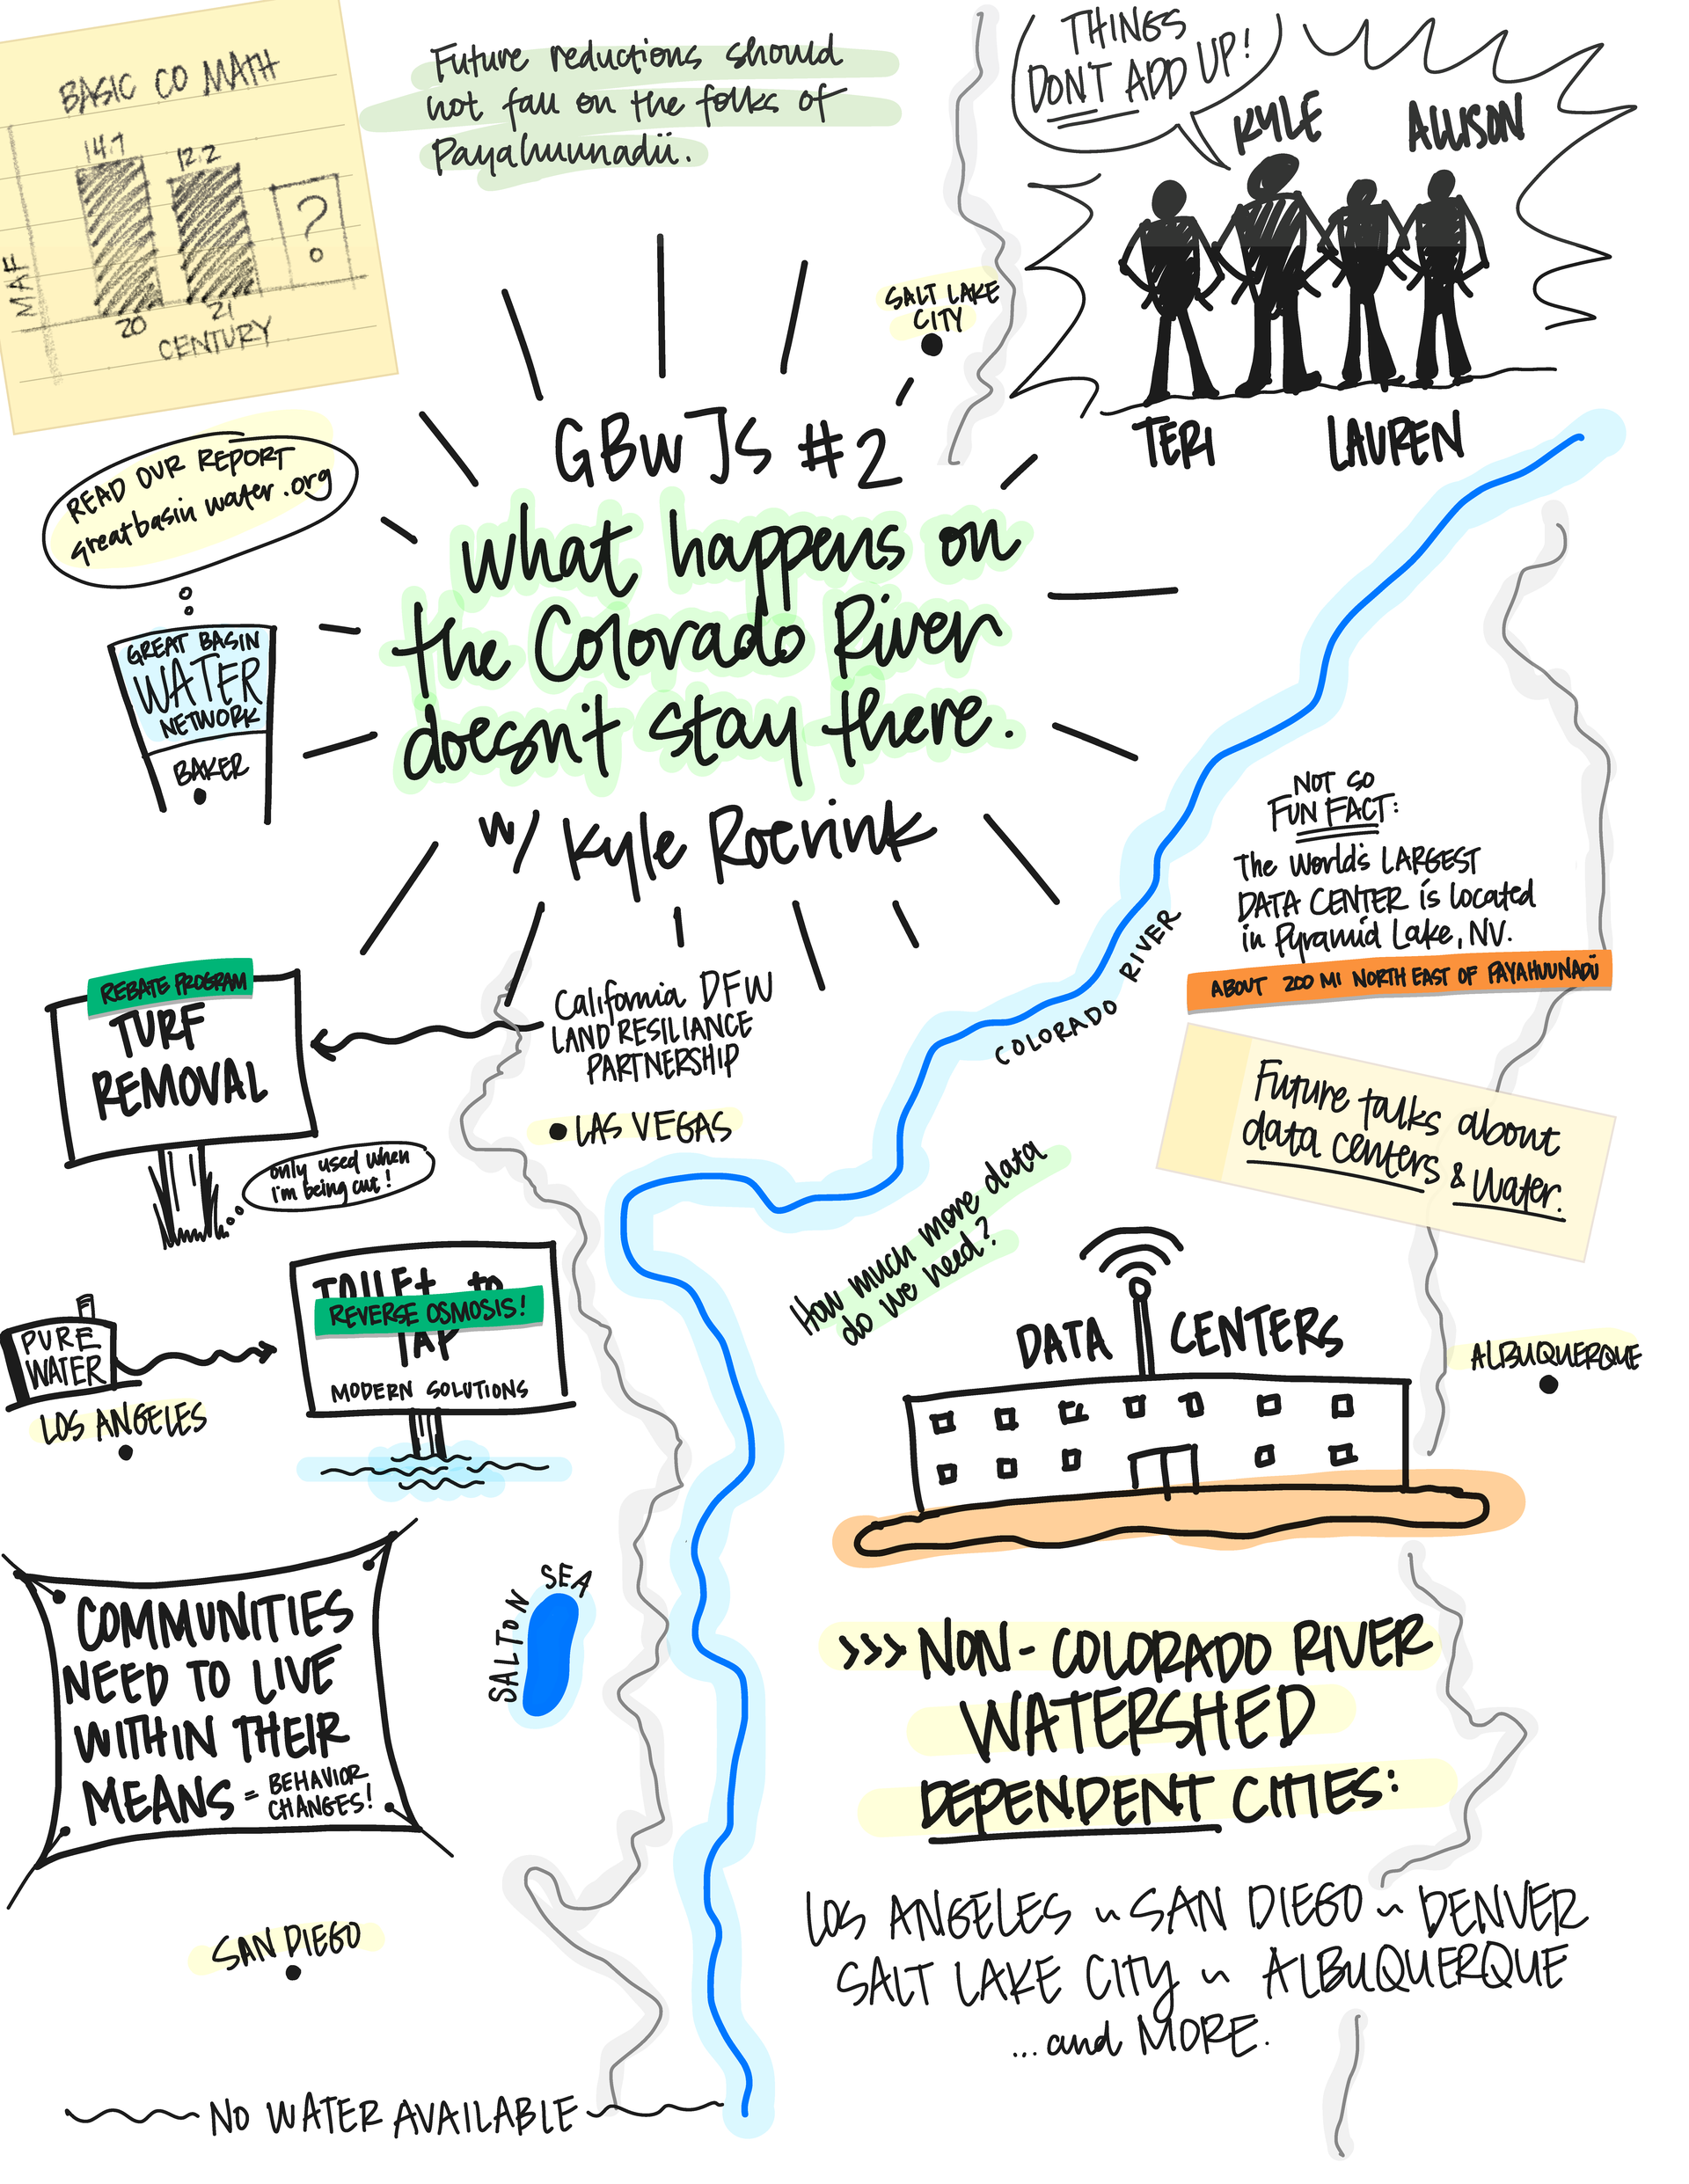 BASIC CO MATH
14.7
12.2
?
MAF
20
21
CENTURY
Future reductions should
not fall on the folks of
Payahuunadü.
THINGS
DON'T ADD UP!
KYLE
ALLISON
TERI
LAUREN
SALT LAKE
CITY
READ OUR REPORT
greatbasin water.org
GREAT BASIN
WATER
NETWORK
BAKER
GBWJS #2
What happens on
the Colorado River
doesn't stay there.
w/ Kyle Roerink
NOT SO
FUN FACT:
The World's LARGEST
DATA CENTER is located
in Pyramid Lake, NV.
ABOUT 200 MI NORTH EAST OF PAYAHUUNADÜ
Future talks about
data centers & Water.
REBATE PROGRAM
TURF
REMOVAL
only used when
I'm being cut!
California DFW
LAND RESILIANCE
PARTNERSHIP
LAS VEGAS
COLORADO RIVER
How much more data
do we need?
PURE
WATER
LOS ANGELES
TOILET to
REVERSE OSMOSIS!
TAP
MODERN SOLUTIONS
DATA CENTERS
ALBUQUERQUE
COMMUNITIES
NEED TO LIVE
WITHIN THEIR
MEANS = BEHAVIOR
CHANGES!
SALTON SEA
>>> NON-COLORADO RIVER
WATERSHED
DEPENDENT CITIES:
LOS ANGELES ~ SAN DIEGO ~ DENVER
SALT LAKE CITY ~ ALBUQUERQUE
...and MORE.
SAN DIEGO
NO WATER AVAILABLE